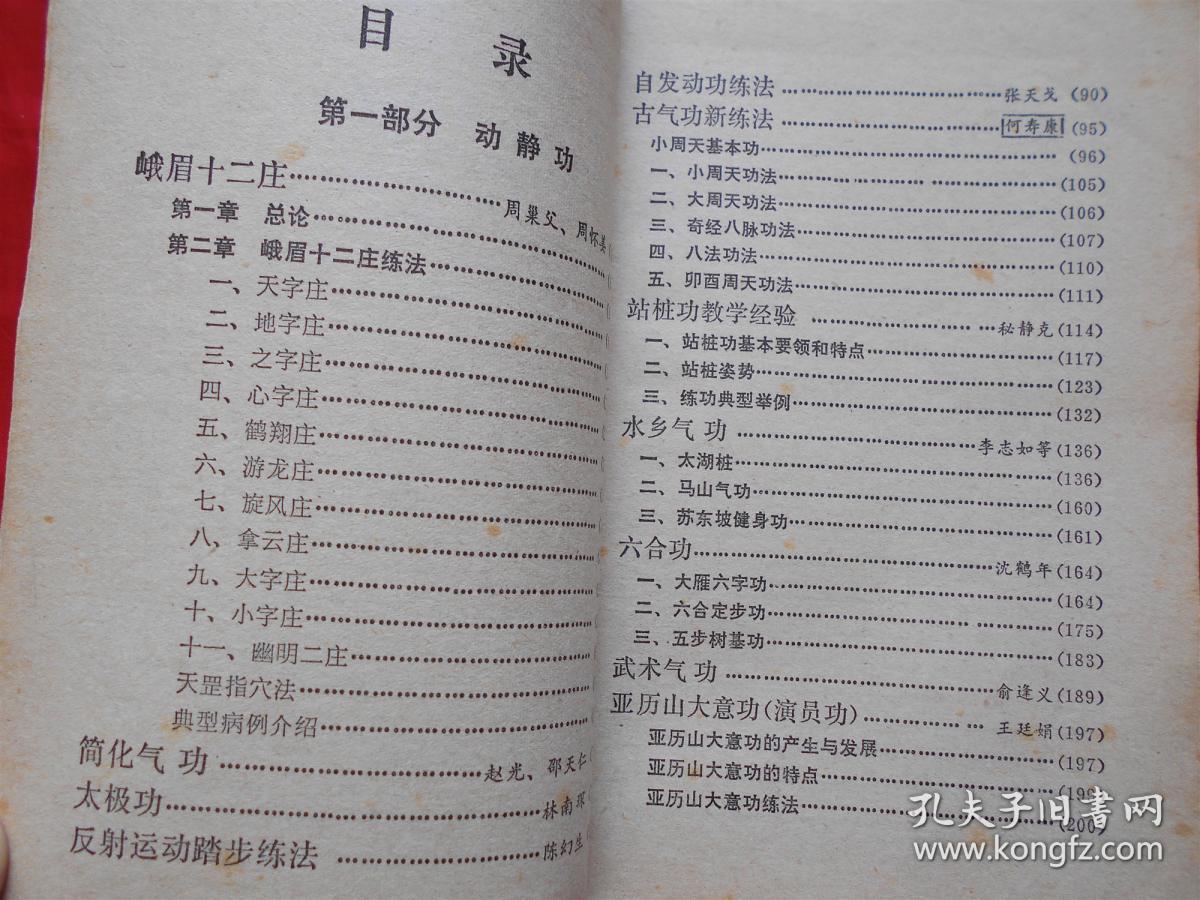 目 录
第一部分 动静功
峨眉十二庄………………周巢父、周怀姜
第一章 总论………………
第二章 峨眉十二庄练法………………
一、天字庄………………
二、地字庄………………
三、之字庄………………
四、心字庄………………
五、鹤翔庄………………
六、游龙庄………………
七、旋风庄………………
八、拿云庄………………
九、大字庄………………
十、小字庄………………
十一、幽明二庄………………
天罡指穴法………………
典型病例介绍………………
简化气功………………赵光、邵天仁
太极功………………林南琛
反射运动踏步练法………………陈幻生
自发动功练法………………张天戈(90)
古气功新练法………………何寿康(95)
小周天基本功………………(96)
一、小周天功法………………(105)
二、大周天功法………………(106)
三、奇经八脉功法………………(107)
四、八法功法………………(110)
五、卯酉周天功法………………(111)
站桩功教学经验………………秘静克(114)
一、站桩功基本要领和特点………………(117)
二、站桩姿势………………(123)
三、练功典型举例………………(132)
水乡气功………………李志如等(136)
一、太湖桩………………(136)
二、马山气功………………(160)
三、苏东坡健身功………………(161)
六合功………………沈鹤年(164)
一、大雁六字功………………(164)
二、六合定步功………………(175)
三、五步树基功………………(183)
武术气功………………俞逢义(189)
亚历山大意功(演员功)………………王廷娟(197)
亚历山大意功的产生与发展………………(197)
亚历山大意功的特点………………(199)
亚历山大意功练法………………(200)
孔夫子旧書网
www.kongfz.com